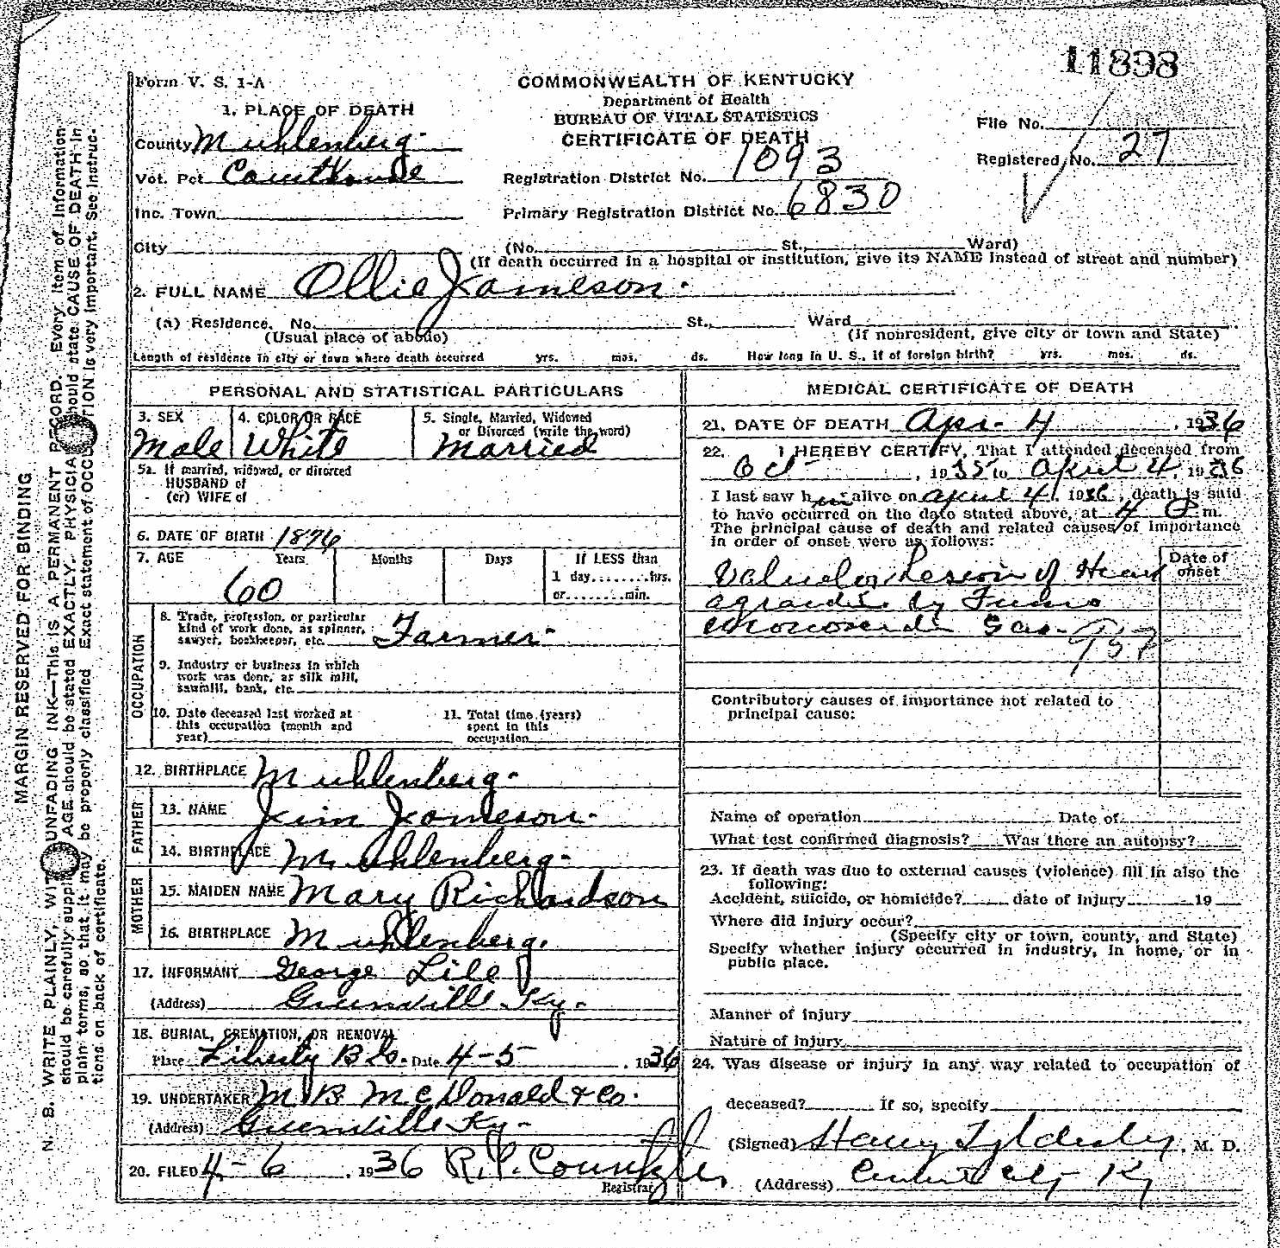 11898
Form V. S. 1-A
COMMONWEALTH OF KENTUCKY
Department of Health
BUREAU OF VITAL STATISTICS
CERTIFICATE OF DEATH
1. PLACE OF DEATH
File No.
County Muhlenberg.
Registered No. 27
Vot. Pct. CourtHouse
Registration District No. 1093
Inc. Town
Primary Registration District No. 6830
City (No. St., Ward)
(If death occurred in a hospital or institution, give its NAME instead of street and number)
2. FULL NAME Ollie Jameson.
(a) Residence. No. St., Ward
(Usual place of abode) (If nonresident, give city or town and State)
Length of residence in city or town where death occurred yrs. mos. ds. How long in U. S., if of foreign birth? yrs. mos. ds.
PERSONAL AND STATISTICAL PARTICULARS
3. SEX Male
4. COLOR OR RACE White
5. Single, Married, Widowed or Divorced (write the word) Married
5a. If married, widowed, or divorced
HUSBAND of
(or) WIFE of
6. DATE OF BIRTH 1876
7. AGE Years Months Days If LESS than
60 1 day........hrs.
or........min.
OCCUPATION
8. Trade, profession, or particular
kind of work done, as spinner, Farmer-
sawyer, bookkeeper, etc.
9. Industry or business in which
work was done, as silk mill,
sawmill, bank, etc.
10. Date deceased last worked at
this occupation (month and
year)
11. Total time (years)
spent in this
occupation
12. BIRTHPLACE Muhlenberg-
FATHER
13. NAME Jim Jameson.
14. BIRTHPLACE Muhlenberg-
MOTHER
15. MAIDEN NAME Mary Richardson
16. BIRTHPLACE Muhlenberg.
17. INFORMANT George Lile
(Address) Greenville Ky-
18. BURIAL, CREMATION, OR REMOVAL
Place Liberty Date 4-5, 1936
19. UNDERTAKER M. B. McDonald & Co.
(Address) Greenville Ky-
20. FILED 4-6, 1936 R. P. Countzler
Registrar
MEDICAL CERTIFICATE OF DEATH
21. DATE OF DEATH Apr- 4, 1936
22. I HEREBY CERTIFY, That I attended deceased from
Oct-, 1935 to April 4, 1936
I last saw h alive on April 4, 1936, death is said
to have occurred on the date stated above, at 4 m.
The principal cause of death and related causes of importance
in order of onset were as follows:
Date of onset
Valvular Lesion of Heart
by Fumes
Gas-
Contributory causes of importance not related to
principal cause:
Name of operation Date of
What test confirmed diagnosis? Was there an autopsy?
23. If death was due to external causes (violence) fill in also the
following:
Accident, suicide, or homicide? date of injury 19
Where did injury occur?
(Specify city or town, county, and State)
Specify whether injury occurred in industry, in home, or in
public place.
Manner of injury
Nature of injury
24. Was disease or injury in any way related to occupation of
deceased? If so, specify
(Signed) Harry Tyldesley, M. D.
(Address) Central City - Ky
MARGIN RESERVED FOR BINDING
N. B. WRITE PLAINLY, WITH UNFADING INK—THIS IS A PERMANENT RECORD. Every item of information
should be carefully supplied. AGE should be stated EXACTLY. PHYSICIANS should state CAUSE OF DEATH in
plain terms, so that it may be properly classified. Exact statement of OCCUPATION is very important. See instruc-
tions on back of certificate.